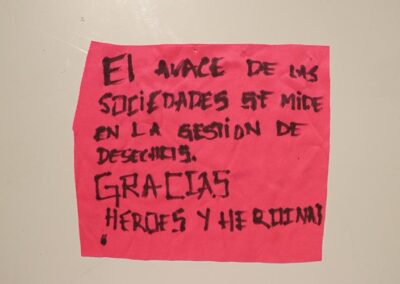 El AVACE DE LAS
SOCIEDADES SE MIDE
EN LA GESTION DE
DESECHOS.
GRACIAS
HEROES Y HEROINAS